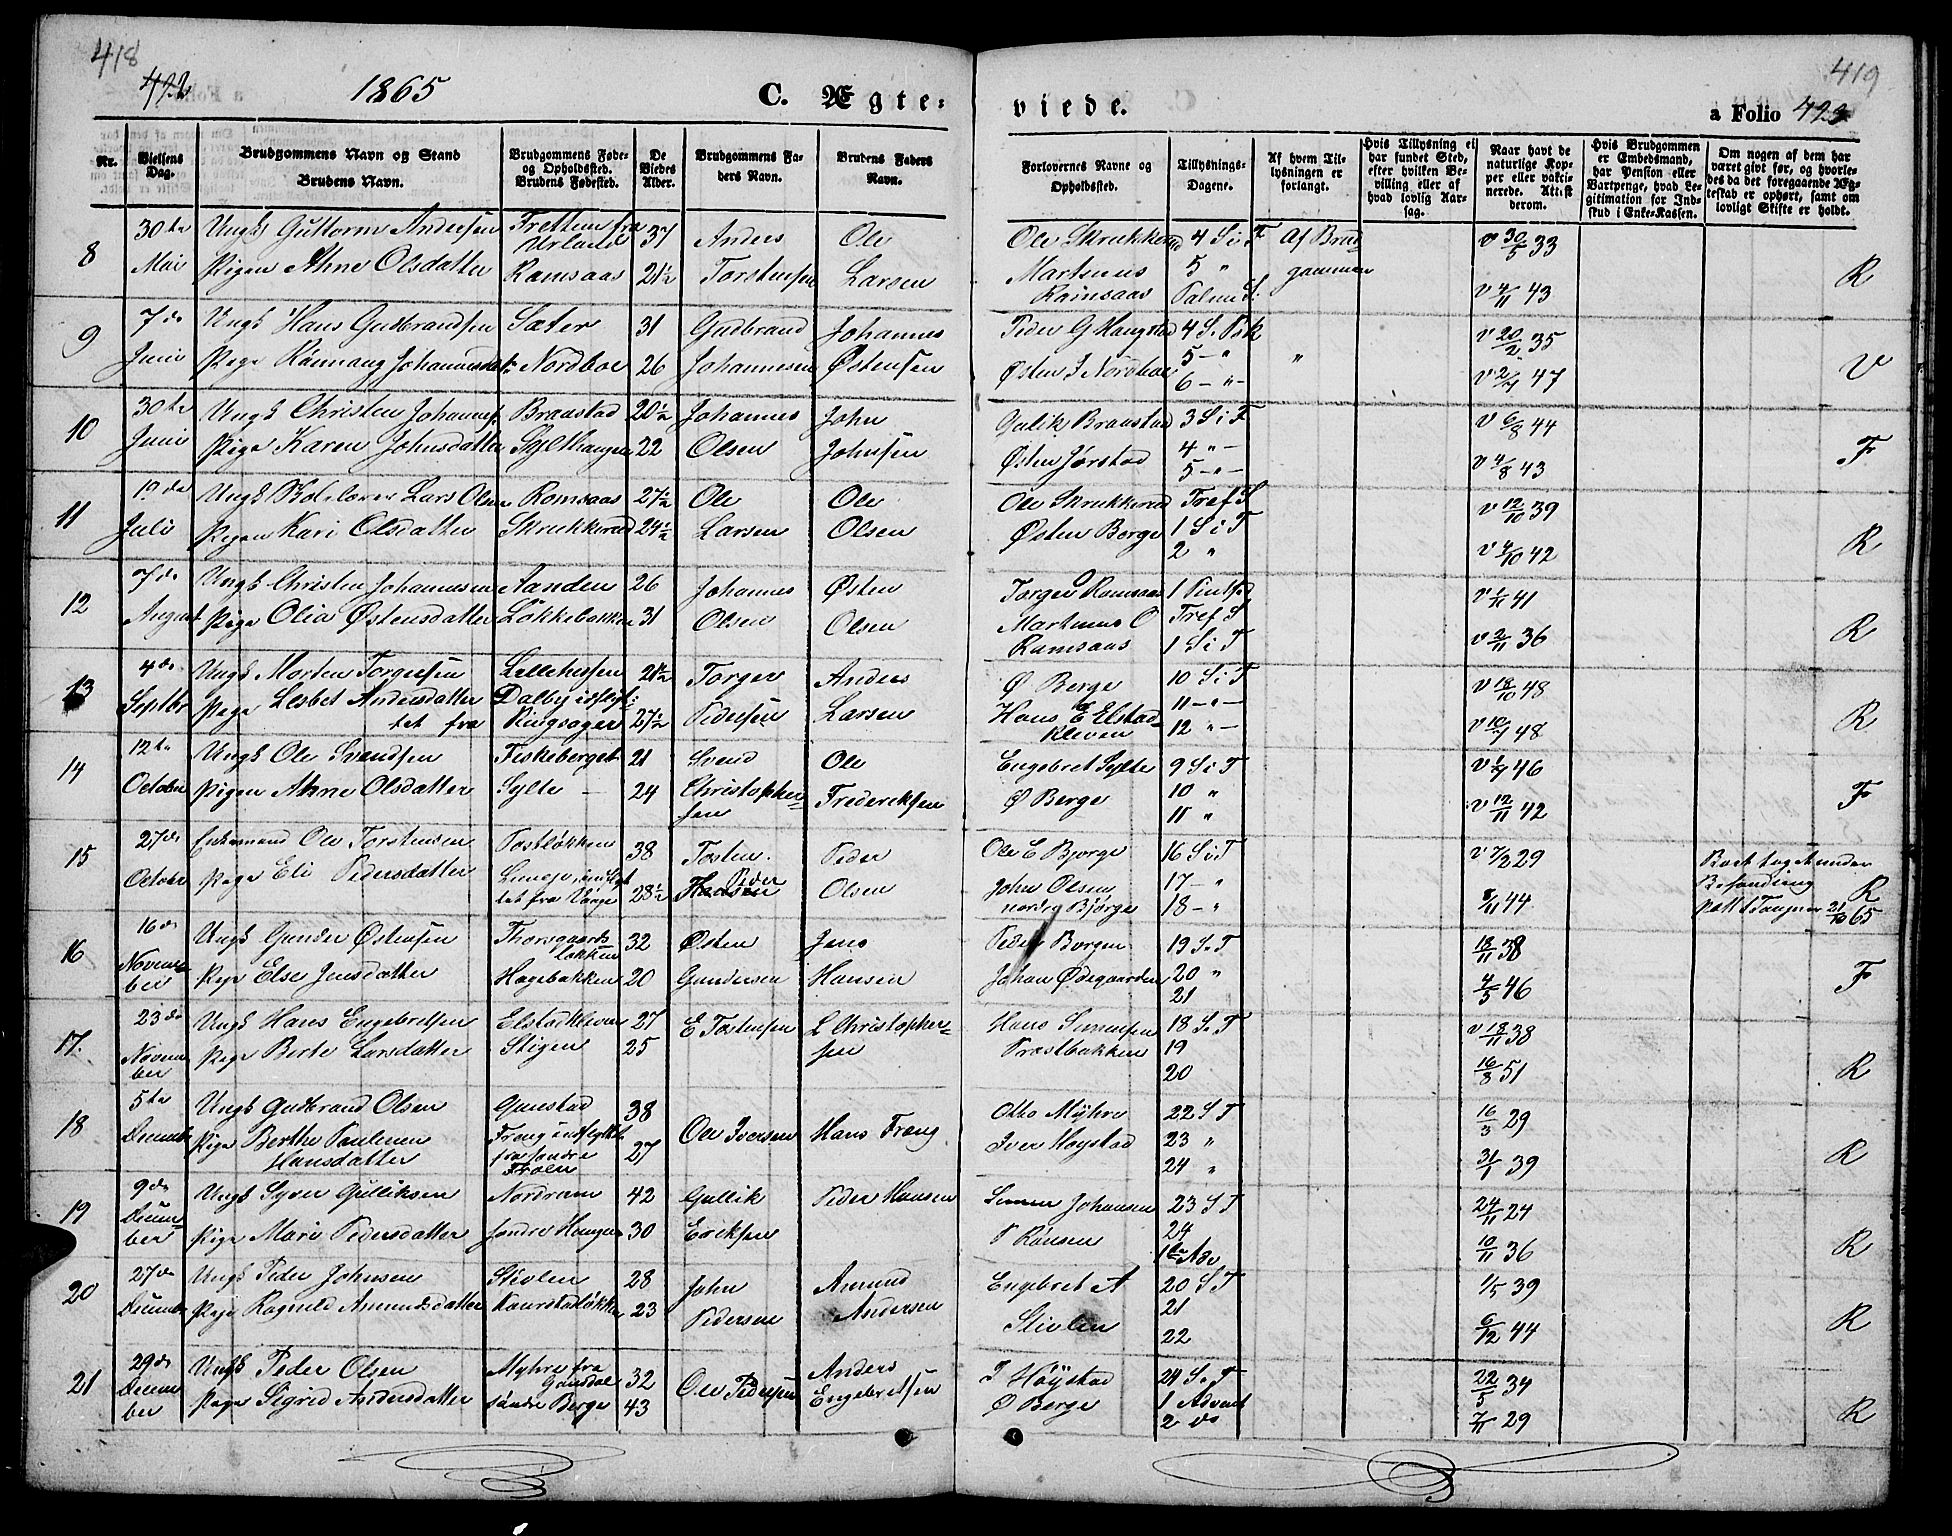 418
422
1865
C. Ægte-
Nr.
Vielsens Dag.
Brudgommens Navn og Stand
Brudens Navn.
Brudgommens Føde- og Opholdssted. Brudens Fødested.
De Viedes Alder.
Brudgommens Faders Navn.
Brudens Faders Navn.
8 30te Ungk Guttorm Andersen Tretten fra Urland 37 Anders Ole
Mai Pigen Ahne Olsdatter Ramsaas 21½ Torstensen Larsen
9 7de Ungk Hans Gudbrandsen Sæter 31 Gudbrand Johannes
Juni Pige Rønnaug Johannesdat: Nordboe 26 Johannesen Østensen
10 30te Ungk Christen Johannes. Braastad 20½ Johannes John
Juni Pige Karen Johnsdatter Sylthaugen 22 Olsen Johnsen
11 Ungk Lars Olsen Romsaas 27½ Ole Ole
Juli Pigen Kari Olsdatter Skrukkerud 24½ Larsen Olsen
12 7de Ungk Christen Johannesen Sanden 26 Johannes Østen
August Pige Olia Østensdatter Løkkebakken 31 Olsen Olsen
13 4de Ungk Morten Torgersen 21½ Torger Anders
Septbr Pige Lesbet Andersdatter Dalby idflyt:
tet fra Ringsager 27½ Pedersen Larsen
14 12te Ungk Ole Svendsen Fiskeberget 21 Svend Ole
October Pigen Ahne Olsdatter Sylte 24 Christopher-
sen Frederiksen
15 27de Enkemand Ole Torstensen 38 Tosten Peder
October Pige Eli Pedersdatter tet fra Vaage 28½ Peder Olsen
16 16de Ungk Gunder Østensen Thorsgaards
løkken 32 Østen Jens
Novem-
ber Pige Else Jensdatter Hagebakken 20 Gundersen Hansen
17. 23de Ungk Hans Engebretsen Elstadkleven 27 E Tostensen L Christopher-
sen
Novem
ber Pige Berte Larsdatter Stigen 25
18 5te Ungk Gudbrand Olsen Gunstad 38 Ole Iversen Hans Frong
Decemb Pige Berthe Pauline
Hansdatter Frong indflyttet
fra søndre
Froen 27
19 9de Ungk Syver Gulliksen Nordrum 42 Gullik Peder Hansen
Decem-
ber Pige Mari Pedersdatter søndre Haugen 30 Eriksen
20 27de Ungk Peder Johnsen Stivlen 28 John Amund
Decemb Pige Ragnild Amundsdatter 23 Pedersen Andersen
21 29de Ungk Peder Olsen Myhre fra
Gausdal 32 Ole Pedersen Anders
Engebretsen
Decem
ber Pige Sigrid Andersdatter søndre Berge 43
419
viede.
a Folio 423
Forlovernes Navne og Opholdssted.
Tillysnings-Dagene.
Af hvem Tillysningen er forlangt.
Hvis Tillysning ei har fundet Sted, efter hvilken Bevilling eller af hvad lovlig Aarsag.
Naar havt de naturlige Kopper eller vakcinerede. Attist derom.
Hvis Brudgommen er Embedsmand, har Pension eller Vartpenge, hvad Legitimation for Indskud i Enke-Kassen.
Om nogen af dem har været gift før, og hvorledes da det foregaaende Ægteskab er ophørt, samt om lovligt Skifte er holdt.
Ole Skrukkerud 4 S i F Af Brud
gommen v 30/5 33
Martinus
Ramsaas 5 "
Palme S: v 4/11 43 R
Peder G Haugstad 4 S. Psk v 20/2 35
Østen J Nordboe 5 - "
6 - " - " v 2/7 47 V
Gulik Braastad 3 S i F v 6/8 44
Østen Jørstad 4 " -
5 - " - v 4/8 43 F
Ole Skrukkerud Tref S v 12/10 39
Østen Berge 1 S i T
2 " v 4/10 42 R
Torger Ramsaas 1 v 1/11 41
Martinus O
Ramsaas Tref S
1 S i T v 2/11 36 R
Ø Berge 10 S i T v 18/10 48
Hans E Elstad-
kleven 11 - " -
12 " - v 10/7 48 R
Engebret Sylte 9 S i T v 1/7 46
Ø Berge 10 "
11 " v 12/11 42 F
Ole E Bjørge 16 S i T v 7/2 29
John Olsen
nordre Bjørge 17 - "
18 - " 8/11 44 R
21/10 65
Peder Borgen 19 S. T 18/11 38
Johan Ødegaarden 20 "
21 4/5 46 F
Hans Simensen 18 S. T v 18/11 38
Præstbakken 19
20 16/8 51 R
Otto Myhre 22 S T 16/3 29
Iver Høystad 23 "
24 " 31/1 39 R
Simen Johansen 23 S T 24/11 24
24
1te Adv 10/11 36 R
Engebret A 20 S T 1/5 39
Stivlen 21
22 6/12 44 R
I Høystad 24 S. T 22/5 34
Ø Berge 1 Advent
2 do 7/11 29 R